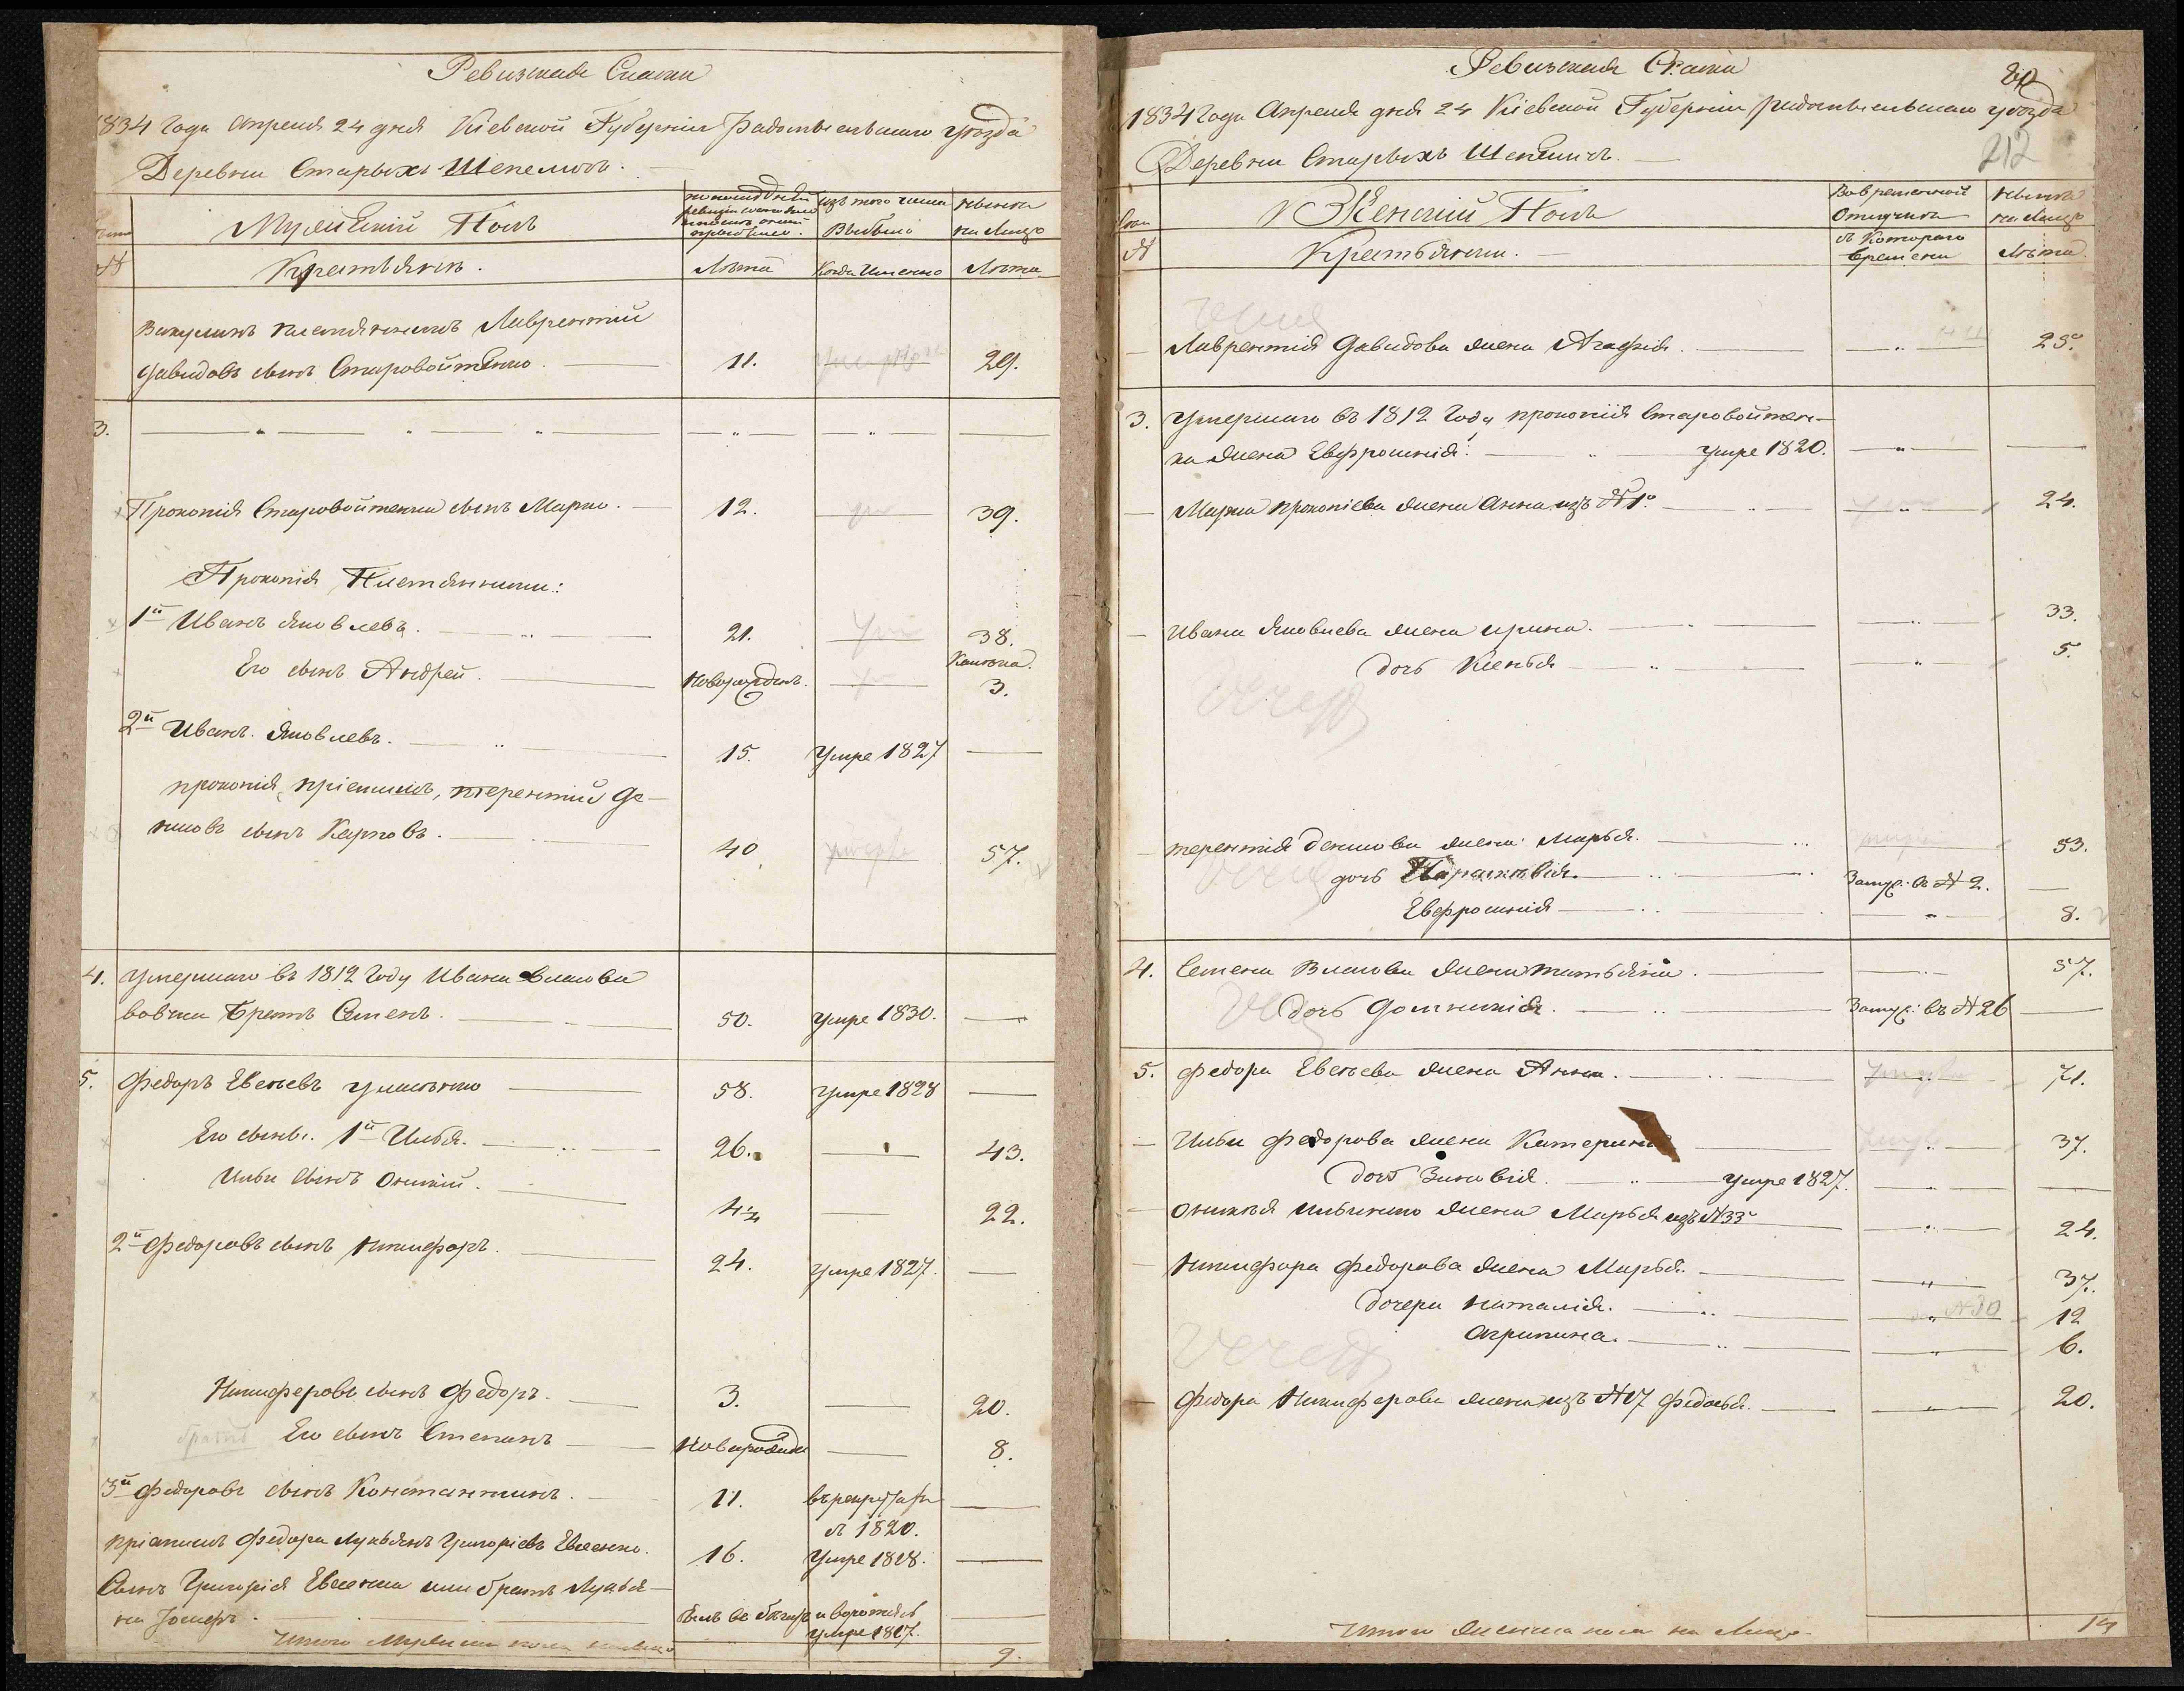 Ревизская Сказка
1834 года Апреля 24 дня Киевской Губернии Радомысльскаго уезда
Деревни Старыхъ Шепеличъ.
Мужеский Полъ
по последней ревизии состояло и после оной прибыло
изъ того числа Выбыло
ныне на Лицо
№
Крестьяне.
Лета
Когда Именно
Лета
Викулинъ племянникъ Лаврентий
Давидовъ сынъ Старовойтенко 11. 29.
3.
Прокопия Старовойтенка сынъ Марко. 12. 39.
Прокопия Племянники:
1й Иванъ Яковлевъ. 21. 38.
Его сынъ Андрей. новорожденъ. 3.
2й Иванъ Яковлевъ. 15. умре 1827
прокопия приемышъ, терентий Де-
нисовъ сынъ Карповъ. 40 57.
4. умершаго въ 1812 году Ивана Власова
вовка Братъ Семенъ. 50. умре 1830.
5. Федоръ Евсеевъ 58. умре 1828
Его сынъ. 1й Илья. 26. 43.
Ильи сынъ Оникий. 4½ 22.
2й Федоровъ сынъ Никифоръ. 24. умре 1827.
Никифоровъ сынъ Федоръ. 3. 20.
братъ Его сынъ Степанъ новорожденъ 8.
3й Федоровъ сынъ Константинъ. 11. въ рекруты
в 1820.
приемышъ Федора Лукьянъ Григориевъ Евсеенко. 16. умре 1818.
Сынъ Григория Евсеенка или братъ Лукья-
на Иосифъ. былъ въ бегахъ и воротясь
умре 1817.
Итого Мужеска пола налицо 9.
Ревизская Сказка
80
1834 года Апреля дня 24 Киевской Губернии Радомысльскаго уезда
212
Деревни Старыхъ Шепеличъ.
Женский Полъ
Во временной Отлучке
ныне на Лицо
№
Крестьянки.
съ Котораго времени
Лета
Лаврентия Давидова жена Агафия. 25.
3. Умершаго въ 1812 году прокопия Старовойтен-
ка жена Евфросиния. умре 1820.
Марка прокопиева жена Анна изъ №1. 24.
Ивана Яковлева жена ирина. 33.
дочь Ксенья 5.
терентия денисова жена Марья. 53.
дочь Парасковия. Замуж: въ №2.
Евфросиния 8.
4. Семена Власова жена татьяна. 57.
дочь Домникия. Замуж: въ №26
5. Федора Евсеева жена Анна. 71.
Ильи Федорова жена Катерина 37.
дочь Зиновия. умре 1827.
Оникия Ильина жена Марья изъ №33 24.
Никифора Федорова жена Марья. 37.
Дочери наталия. №30 12
Агрипина. 6.
Федора Никифорова жена изъ №17 Федосья. 20.
Итого женска пола на Лицо 14